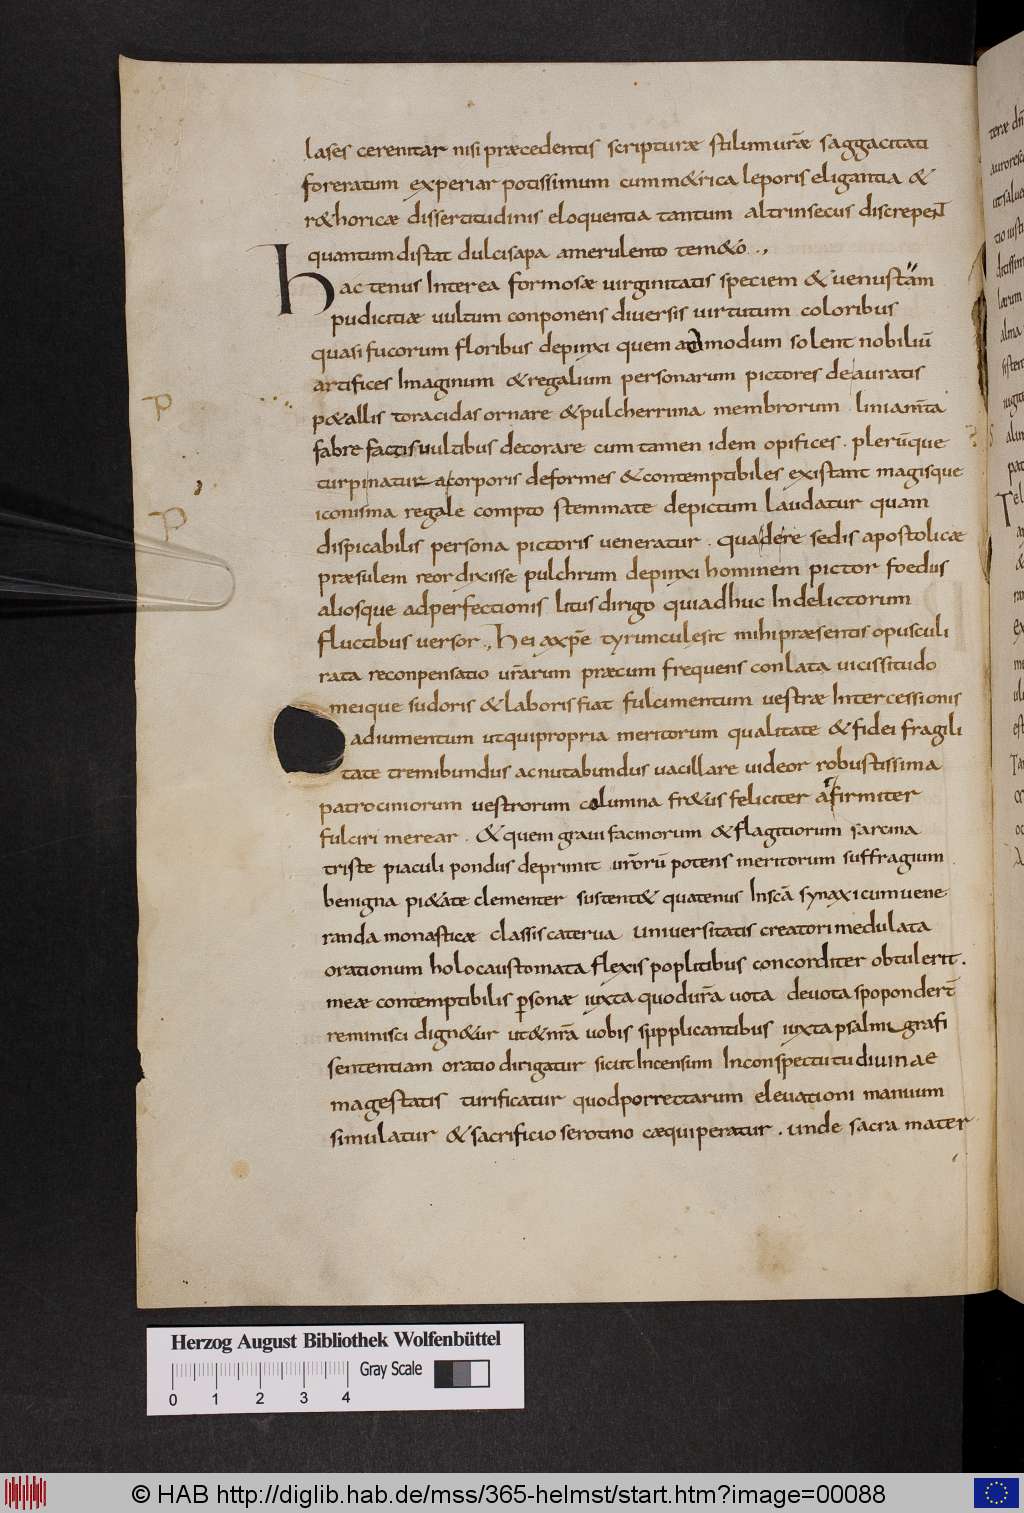 lases cerenitar nisi præcedentis scripturæ stilum urāe saggacitati
foreratum experiar potissimum cum m&rica leporis eligantia &
r&horicæ dissertitudinis eloquentia tantum altrinsecus discrepeNT
quantum distat dulcis apa amerulento tem&ó.,
hac tenus Interea formosæ uirginitatis speciem & uenustam
pudicitiæ uultum conponens diuersis uirtutum coloribus
quasi fucorum floribus depinxi quem admodum solent nobiliū
artifices Imaginum & regalium personarum pictores deauratis
p&allis toracidas ornare & pulcherrima membrorum liniam̄ta
fabre factis uultibus decorare cum tamen idem opifices. plerūque
turpi natura corporis deformes & contemptibiles existant magisque
iconisma regale compto stemmate depictum laudatur quam
dispicabilis persona pictoris ueneratur. qua de re sedis apostolicæ
præsulem reor dixisse pulchrum depinxi hominem pictor foedus
aliosque ad perfectionis litus dirigo qui adhuc In delictorum
fluctibus uersor., hei a xp̄e tyruncules it mihi præsentis opusculi
rata reconpensatio ur̄arum præcum frequens conlata uicissitudo
meique sudoris & laboris fiat fulcimentum uestræ Intercessionis
adiumentum ut qui propria meritorum qualitate & fidei fragili
tate tremibundus ac nutabundus uacillare uideor robustissima
patrociniorum uestrorum columna fr&us feliciter a firmiter
fulciri merear. & quem graui facinorum & flagitiorum sarcina
triste piaculi pondus deprimit ur̄orū potens meritorum suffragium
benigna pi&ate clementer sustent& quatenus In scā synaxi cum uene
randa monasticæ classis caterua uniuersitatis creatori medulata
orationum holocaustomata flexis poplitibus concorditer obtulerit.
meæ contemptibilis p̱sonæ iuxta quod ur̄a uota deuota spoponder̄
reminisci dign&ur ut & nr̄a uobis supplicantibus iuxta psalmi grafi
sententiam oratio dirigatur sicut Incensum In conspectu tu diuinae
magestatis turificatur quod porrectarum eleuationi manuum
simulatur & sacrificio serotino cæquiperatur. unde sacra mater
Herzog August Bibliothek Wolfenbüttel
Gray Scale
0 1 2 3 4
© HAB http://diglib.hab.de/mss/365-helmst/start.htm?image=00088